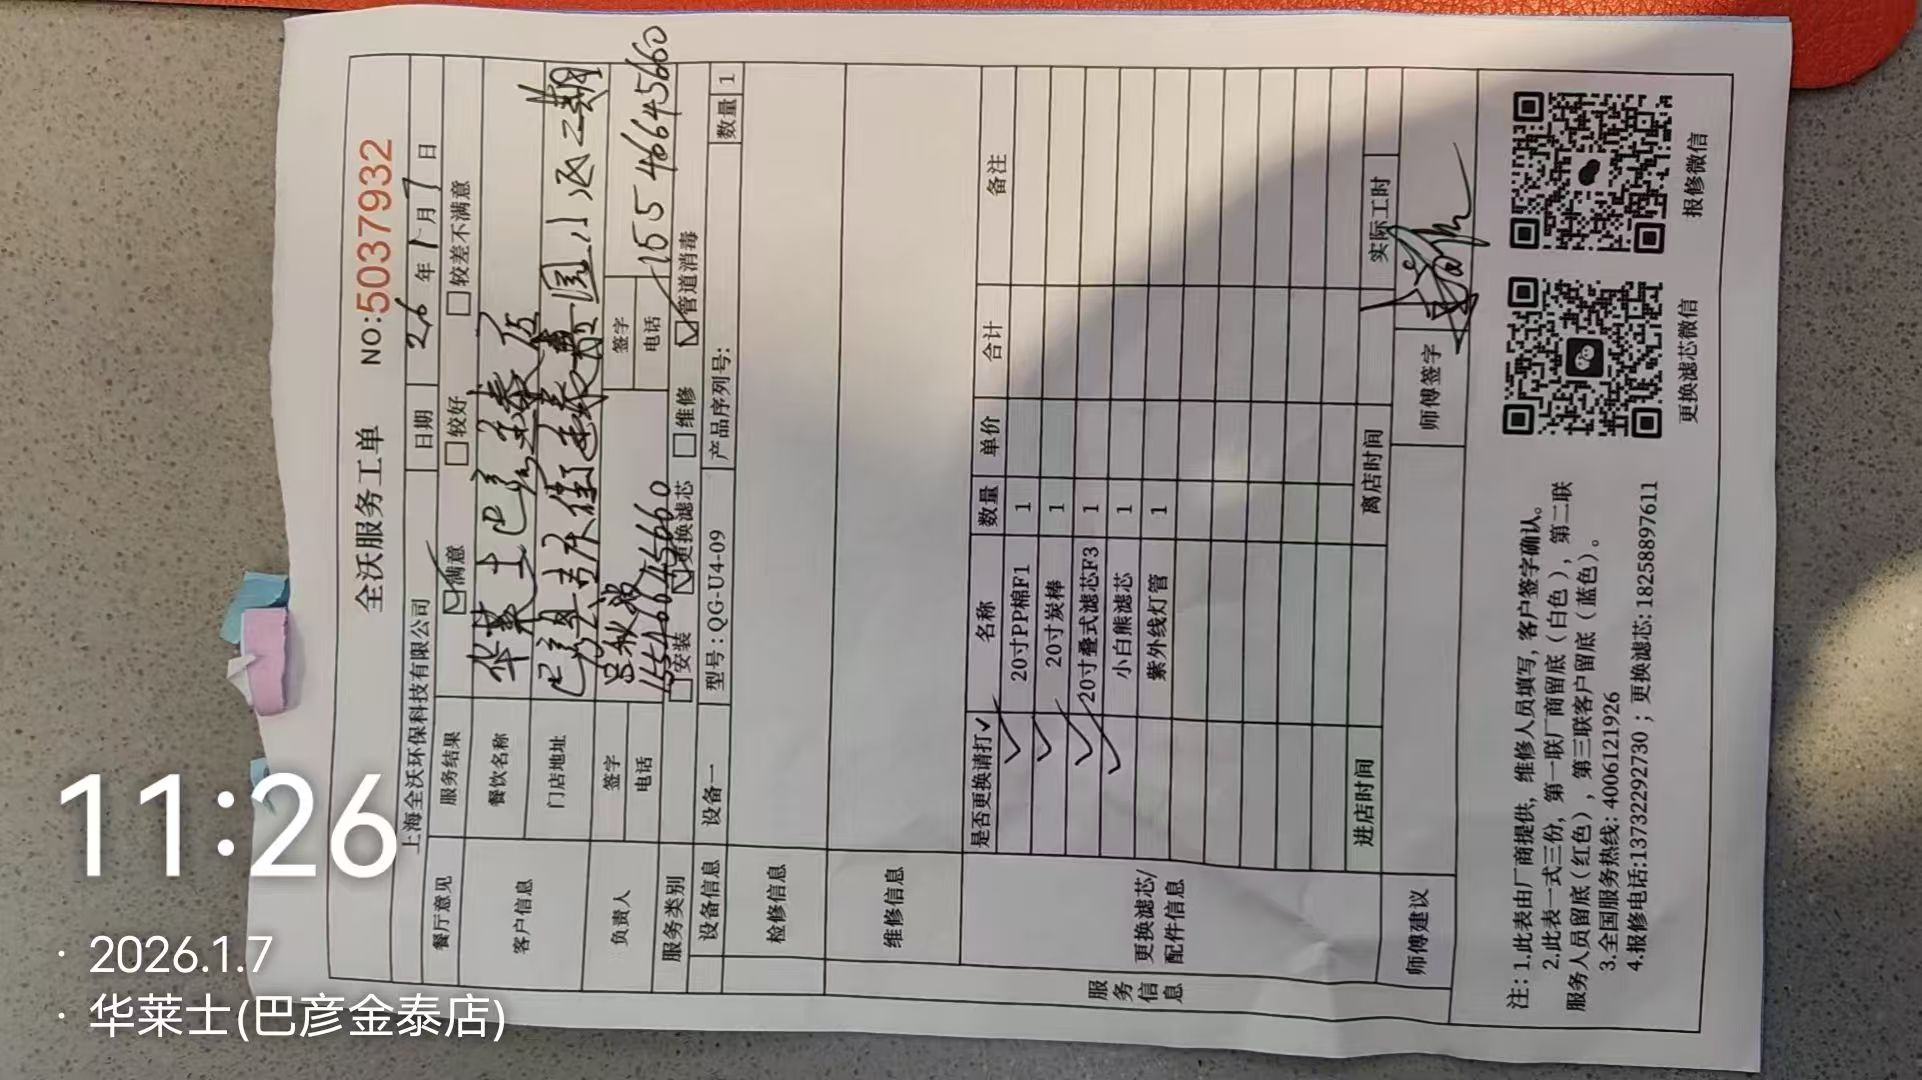 全沃服务工单
NO:5037932
上海全沃环保科技有限公司 日期 26年1月7日
餐厅意见 服务结果 ☑满意 □较好 □较差不满意
客户信息 餐饮名称 华莱士巴彦金泰店
门店地址 巴彦县
负责人 签字 签字
电话 15546645660 电话 15546645660
服务类别 □安装 ☑更换滤芯 □维修 ☑管道消毒
设备信息 设备一 型号：QG-U4-09 产品序列号: 数量 1
检修信息
维修信息
服务信息
更换滤芯/配件信息
是否更换请打✓ 名称 数量 单价 合计 备注
✓ 20寸PP棉F1 1
✓ 20寸炭棒 1
✓ 20寸叠式滤芯F3 1
✓ 小白熊滤芯 1
紫外线灯管 1
进店时间 离店时间 实际工时
师傅建议 师傅签字
注：1.此表由厂商提供，维修人员填写，客户签字确认。
2.此表一式三份，第一联厂商留底（白色），第二联
服务人员留底（红色），第三联客户留底（蓝色）。
3.全国服务热线：4006121926
4.报修电话:13732292730；更换滤芯:18258897611
更换滤芯微信
报修微信
11:26
· 2026.1.7
· 华莱士(巴彦金泰店)